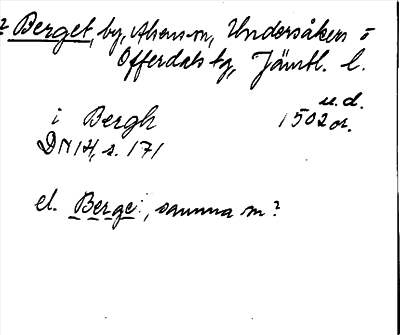 ? Berget, by, Ahens m, Undersåkers o
Offerdals tg, Jämtl. l.
u. d.
i Bergh 1502 or.
DN 14, s. 171
el. Berge:, samma m?